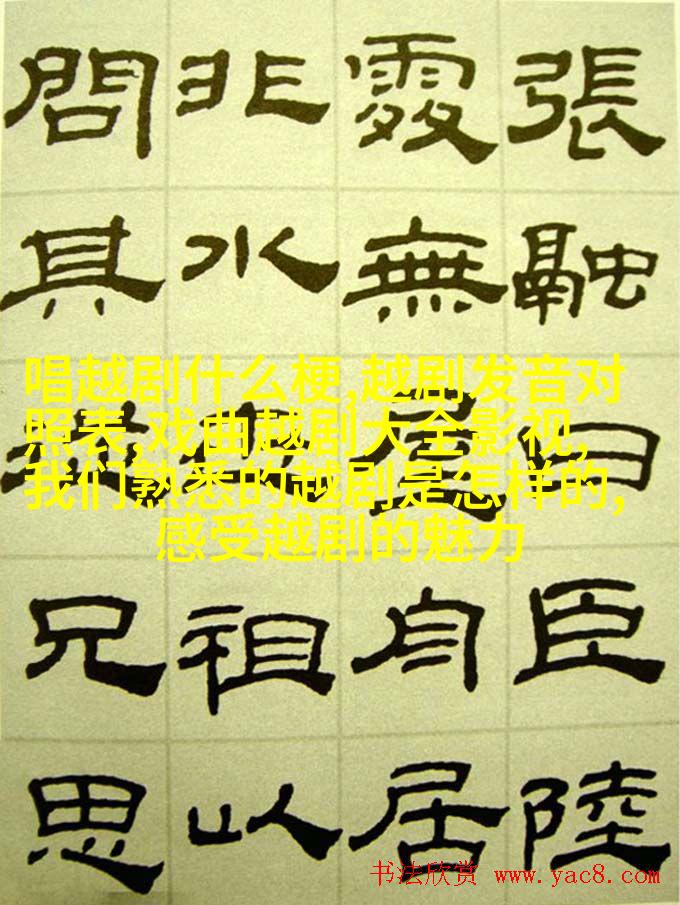 張融曰臣陸
處無屋舟居
非水祖以
問其兄思
唱越剧什么梗,越剧发音对
照表,戏曲越剧大全影视,
我们熟悉的越剧是怎样的,
感受越剧的魅力
书法欣赏 www.yac8.com